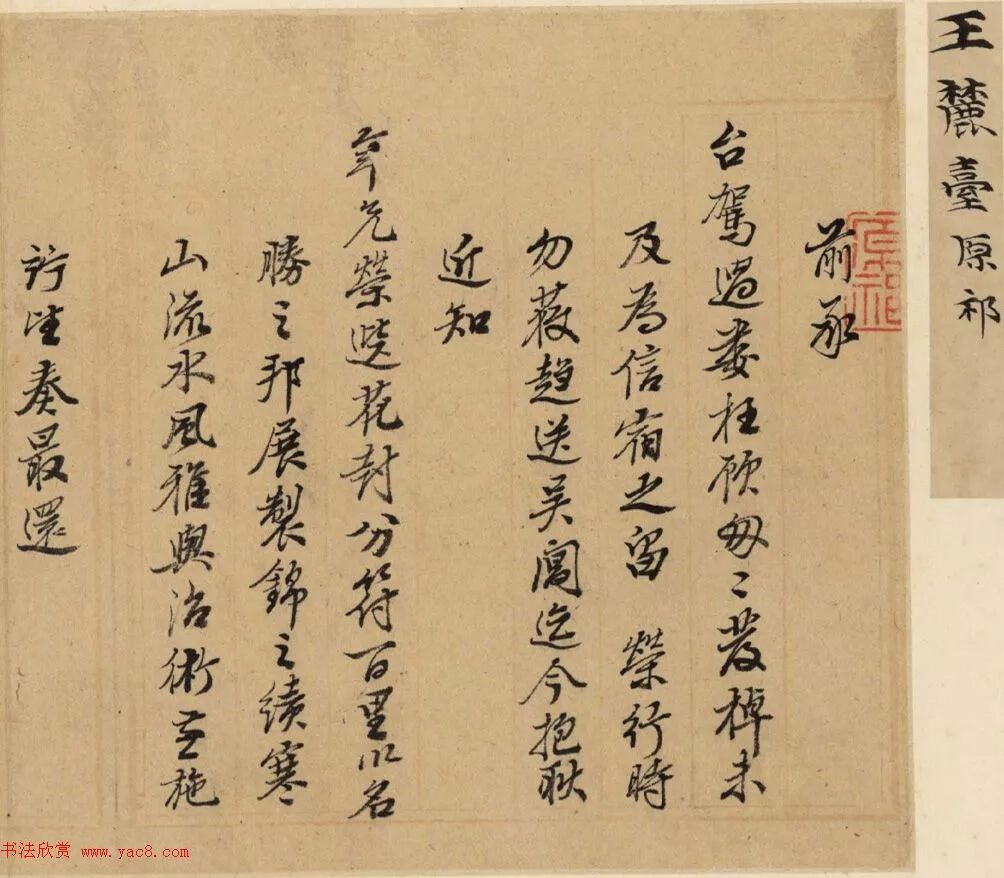 王麓臺原祁
前承
台駕過婁枉顾匆〻發棹未
及為信宿之留 榮行時
勿获趨送吴閶迄今抱耿
近知
年兄榮選花封分符百里以名
勝之邦展製錦之績寒
山流水風雅與治術並施
竚望奏最還
书法欣赏 www.yac8.com